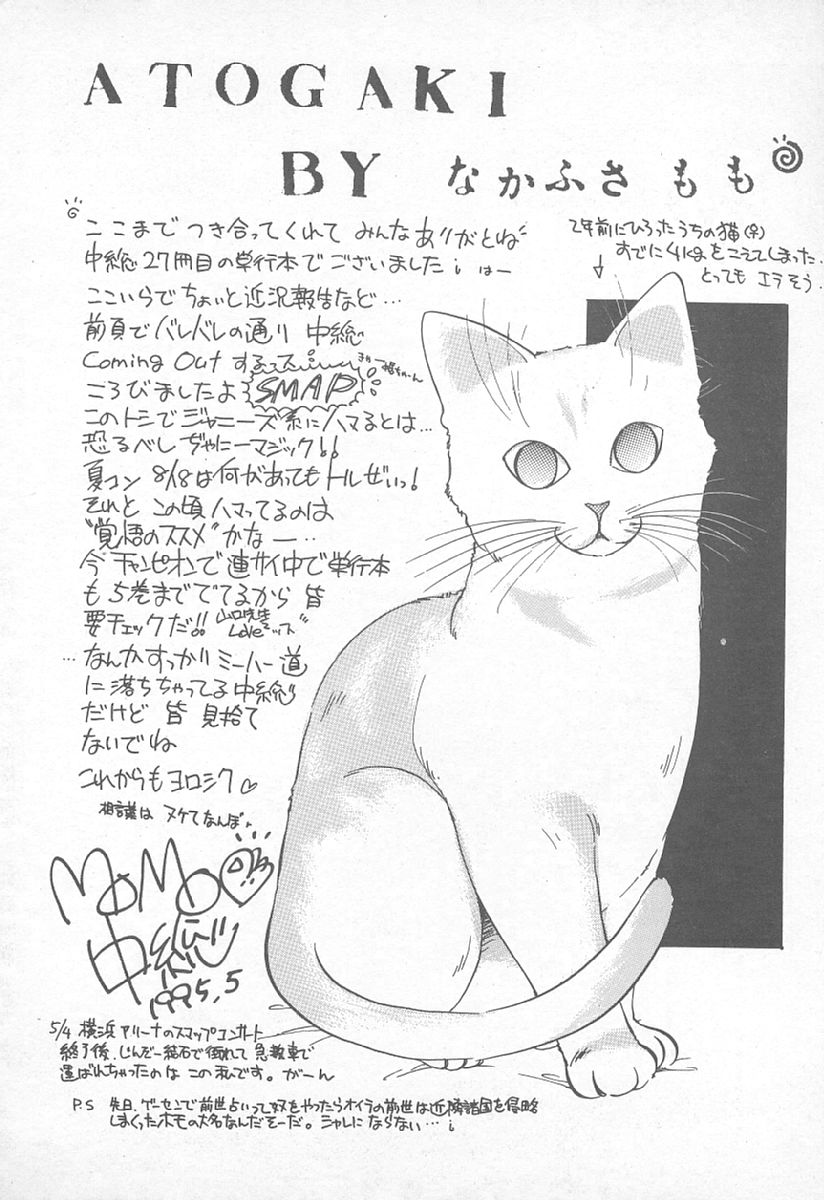 ATOGAKI
BY なかふさ もも
ここまで つき合ってくれて みんなありがとね
中総27冊目の単行本でございました
ここいらでちょいと近況報告など…
前頁でバレバレの通り 中総
Coming Out する
ころびましたよ SMAP
このトシでジャニーズ系にハマるとは…
恐るべし ぢゃにーマジック!!
夏コン 8/18は何があってもトルぜいっ!
それと この頃ハマってるのは
"覚悟のススメ"かなー…
今チャンピオンで連サイ中で単行本
も5巻まででてるから 皆
要チェックだ!! 山口先生Loveっス
…なんかすっかりミーハー道
に落ちちゃってる中総
だけど 皆 見捨て
ないでね
これからもヨロシク♡
相談は ヌケてなんぼ
MOMO
中総
1995.5
2年前にひろったうちの猫(♀)
すでに4kgをこえてしまった.
とっても エラそう.
5/4 横浜アリーナのスマップコンサート
終了後、じんぞー結石で倒れて 急救車で
運ばれちゃったのは この私です。がーん
P.S 先日、ゲーセンで前世占いって奴をやったらオイラの前世は近隣諸国を侵略
しまくったホモの大名なんだそーだ。シャレにならない…